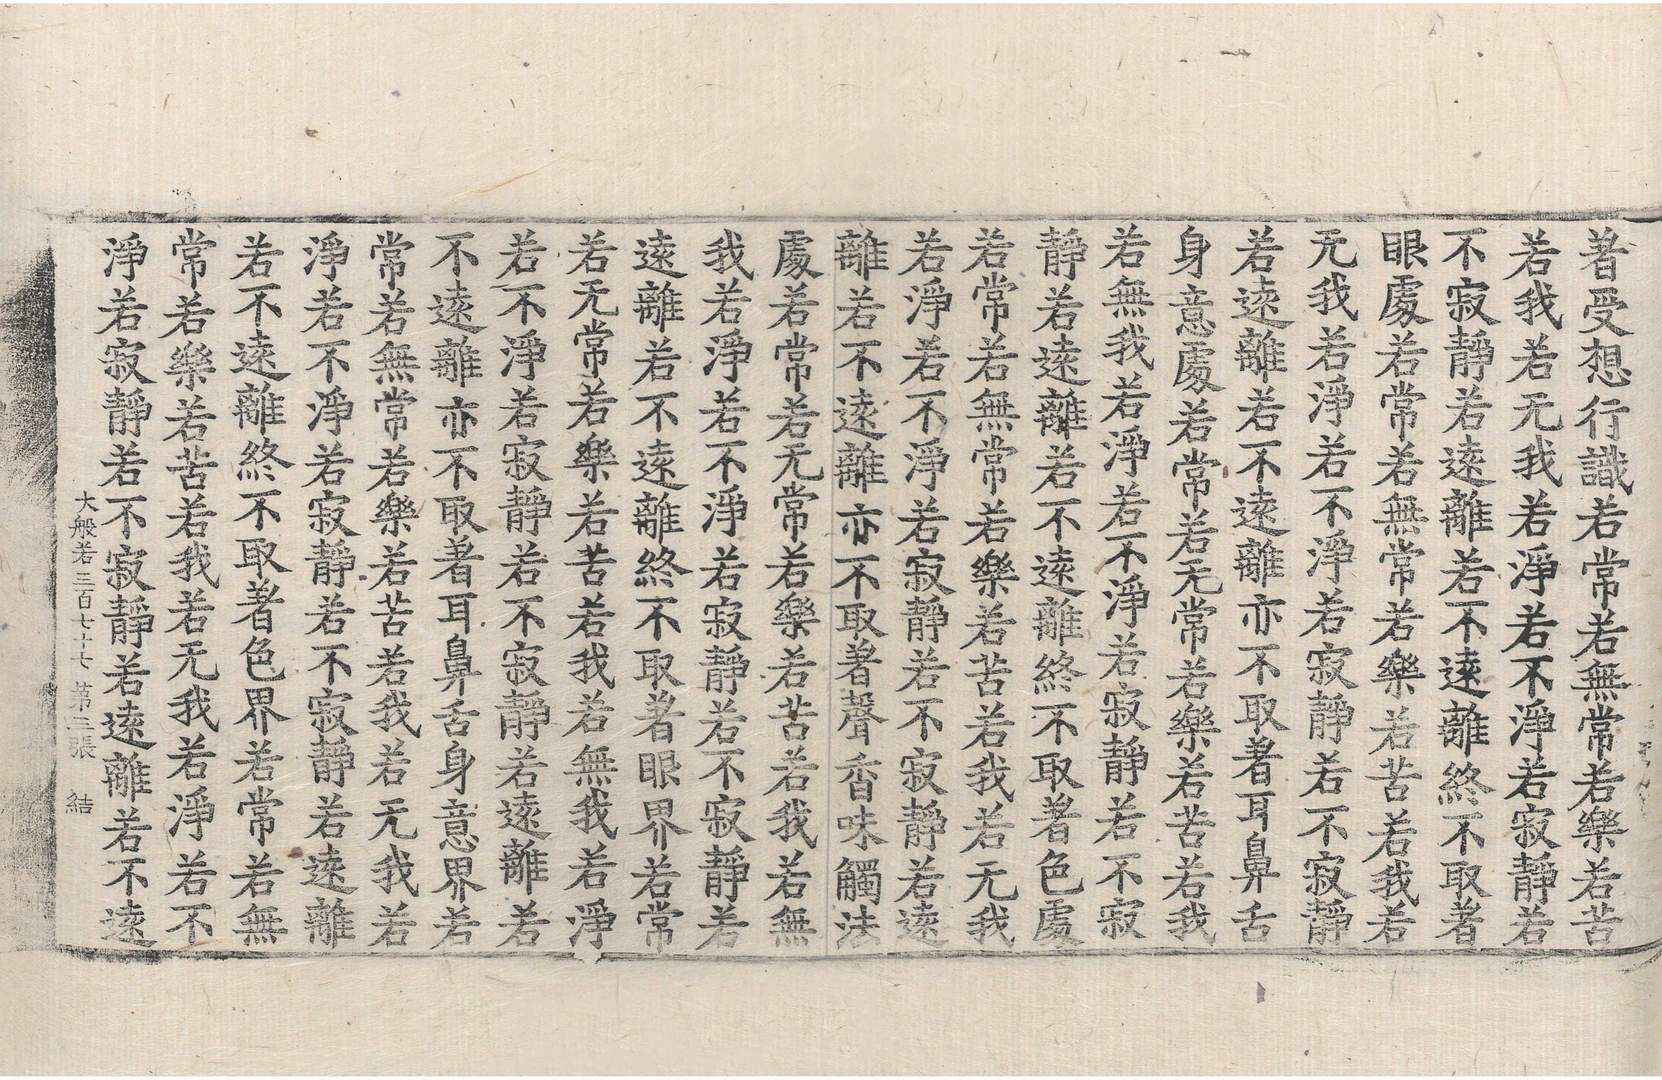 著受想行識若常若無常若樂若苦
若我若无我若淨若不淨若寂靜若
不寂靜若遠離若不遠離終不取著
眼處若常若無常若樂若苦若我若
无我若淨若不淨若寂靜若不寂靜
若遠離若不遠離亦不取著耳鼻舌
身意處若常若无常若樂若苦若我
若無我若淨若不淨若寂靜若不寂
靜若遠離若不遠離終不取著色處
若常若無常若樂若苦若我若无我
若淨若不淨若寂靜若不寂靜若遠
離若不遠離亦不取著聲香味觸法
處若常若无常若樂若苦若我若無
我若淨若不淨若寂靜若不寂靜若
遠離若不遠離終不取著眼界若常
若无常若樂若苦若我若無我若淨
若不淨若寂靜若不寂靜若遠離若
不遠離亦不取著耳鼻舌身意界若
常若無常若樂若苦若我若无我若
淨若不淨若寂靜若不寂靜若遠離
若不遠離終不取著色界若常若無
常若樂若苦若我若无我若淨若不
淨若寂靜若不寂靜若遠離若不遠
大般若三百七十七 第三張 結